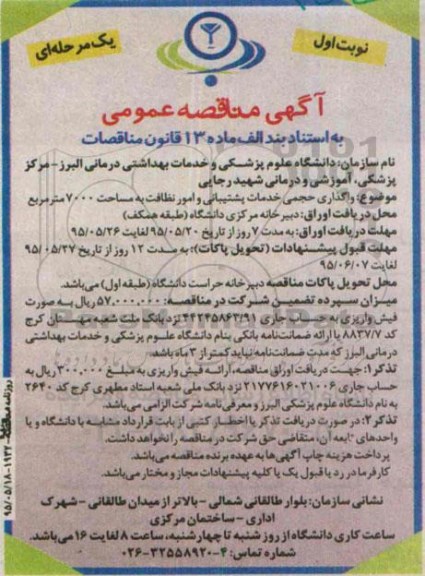 نوبت اول
یک مرحله‌ای
آگهی مناقصه عمومی
به استناد بند الف ماده ۱۳ قانون مناقصات
نام سازمان: دانشگاه علوم پزشکی و خدمات بهداشتی درمانی البرز - مرکز
پزشکی، آموزشی و درمانی شهید رجایی
موضوع: واگذاری حجمی خدمات پشتیبانی و امور نظافت به مساحت ۷۰۰۰ مترمربع
محل دریافت اوراق: دبیرخانه مرکزی دانشگاه (طبقه همکف)
مهلت دریافت اوراق: به مدت ۷ روز از تاریخ ۹۵/۰۵/۲۰ لغایت ۹۵/۰۵/۲۶
مهلت قبول پیشنهادات (تحویل پاکات): به مدت ۱۲ روز از تاریخ ۹۵/۰۵/۲۷
لغایت ۹۵/۰۶/۰۷
محل تحویل پاکات مناقصه دبیرخانه حراست دانشگاه (طبقه اول) می‌باشد.
میزان سپرده تضمین شرکت در مناقصه: ۵۷.۰۰۰.۰۰۰ ریال به صورت
فیش واریزی به حساب جاری ۴۴۲۴۵۸۶۳/۹۱ نزد بانک ملت شعبه مهستان کرج
کد ۸۸۳۷/۷ یا ارائه ضمانت‌نامه بانکی بنام دانشگاه علوم پزشکی و خدمات بهداشتی
درمانی البرز که مدت ضمانت‌نامه نباید کمتر از ۳ ماه باشد.
تذکر۱: جهت دریافت اوراق مناقصه، ارائه فیش واریزی به مبلغ ۳۰۰.۰۰۰ ریال به
حساب جاری ۲۱۷۷۶۱۶۰۲۱۰۰۶ نزد بانک ملی شعبه استاد مطهری کرج کد ۲۶۴۰
به نام دانشگاه علوم پزشکی البرز و معرفی‌نامه شرکت الزامی می‌باشد.
تذکر۲: در صورت دریافت تذکر یا اخطار کتبی از بابت قرارداد مشابه با دانشگاه و یا
واحدهای تابعه آن، متقاضی حق شرکت در مناقصه را نخواهد داشت.
پرداخت هزینه چاپ آگهی‌ها به عهده برنده مناقصه می‌باشد.
کارفرما در رد یا قبول یک یا کلیه پیشنهادات مجاز و مختار می‌باشد.
نشانی سازمان: بلوار طالقانی شمالی - بالاتر از میدان طالقانی - شهرک
اداری - ساختمان مرکزی
ساعت کاری دانشگاه از روز شنبه تا چهارشنبه، ساعت ۸ لغایت ۱۶ می‌باشد.
شماره تماس: ۴-۳۲۵۵۸۹۲۰-۰۲۶